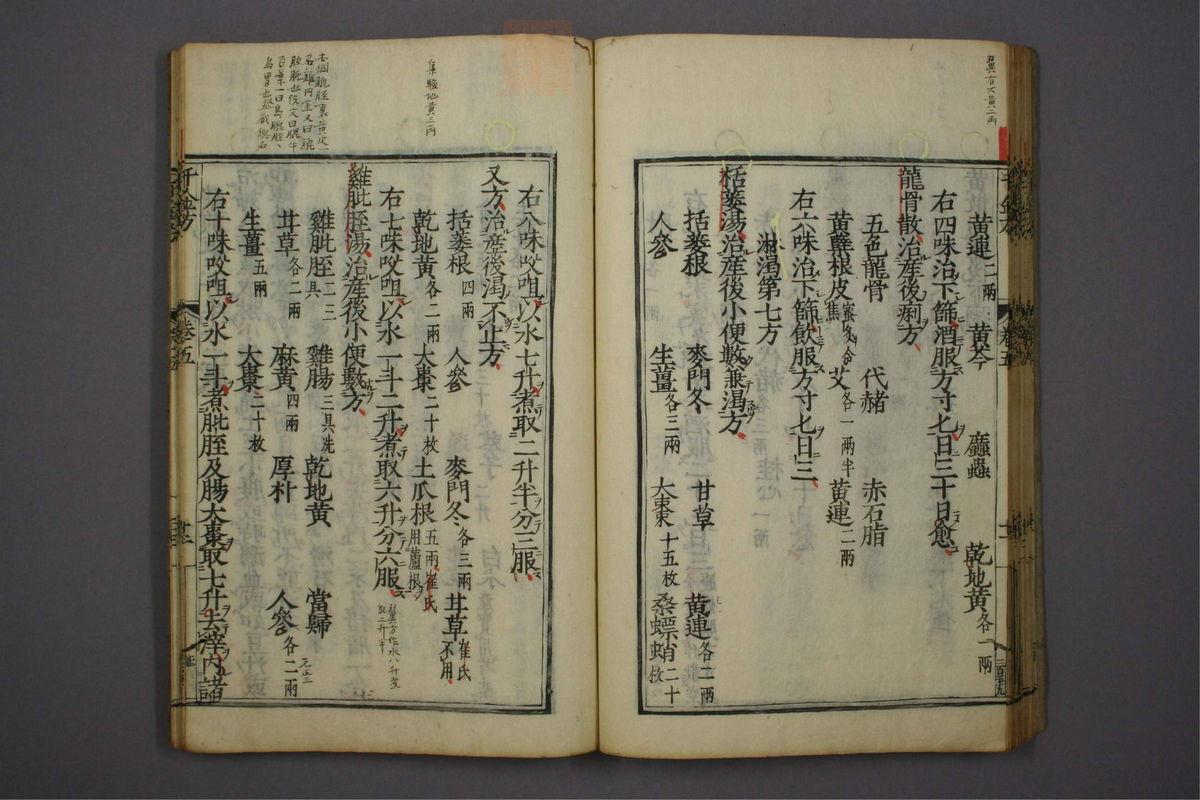 黃連二兩　黃芩　䗪蟲　乾地黃各一兩
右四味治下篩酒服方寸匕日三十日愈
龍骨散治產後痢方
五色龍骨　代赭　赤石脂
黃蘗根皮蜜炙令焦　艾各一兩半　黃連二兩
右六味治下篩飲服方寸匕日三
淋渴第七方
栝蔞湯治產後小便數兼渴方
括蔞根　麥門冬　甘草　黃連各二兩
人參　生薑各三兩　大棗十五枚　桑螵蛸二十枚
右八味㕮咀以水七升煮取二升半分三服
又方治產後渴不止方
括蔞根四兩　人參　麥門冬各三兩　甘草崔氏不用
乾地黃各二兩　大棗二十枚　土瓜根五兩崔氏用蘆根
右七味㕮咀以水一斗二升煮取六升分六服
雞肶胵湯治產後小便數方
雞肶胵二三具　雞腸三具洗　乾地黃　當歸
甘草各二兩　麻黃四兩　厚朴　人參各二兩
生薑五兩　大棗二十枚
右十味㕮咀以水一斗煮肶胵及腸大棗取七升去滓內諸
翼方作水八升煮取二升半
集驗地黃三兩
千金方
卷五